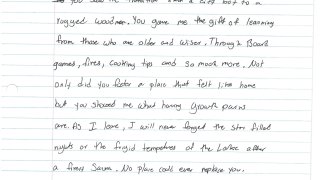 you used the transition from a city boy to a
rugged woodman. You gave me the gift of learning
from those who are older and wiser. Through Board
games, fires, cooking tips and so much more. Not
only did you foster a place that felt like home
but you showed me what having Growth pains
are. As I leave, I will never forget the star filled
nights or the frigid tempetures of the Lake after
a fires Sauna. No place could ever replace you.